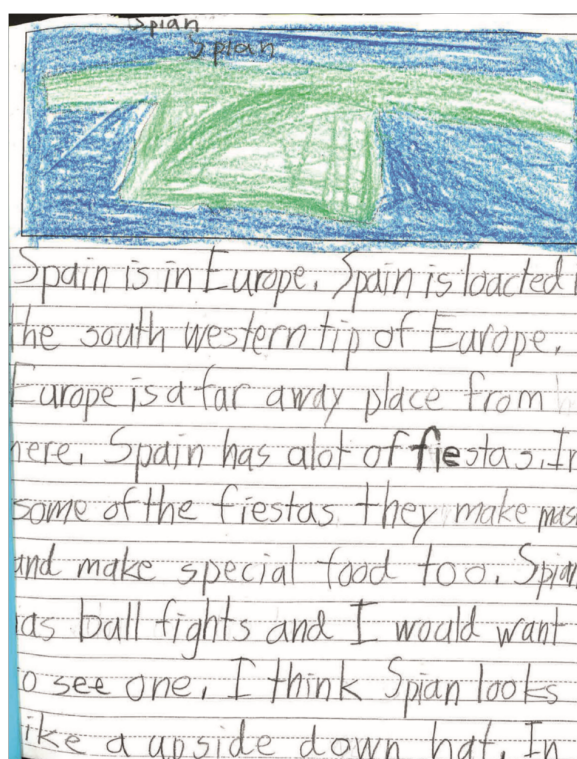 Spian
Spian
Spain is in Europe. Spain is loacted
the south western tip of Europe.
Europe is a far away place from
here. Spain has alot of fiestas. In
some of the fiestas they make mas
and make special food too. Spian
has ball fights and I would want
to see one. I think Spian looks
like a upside down hat. In